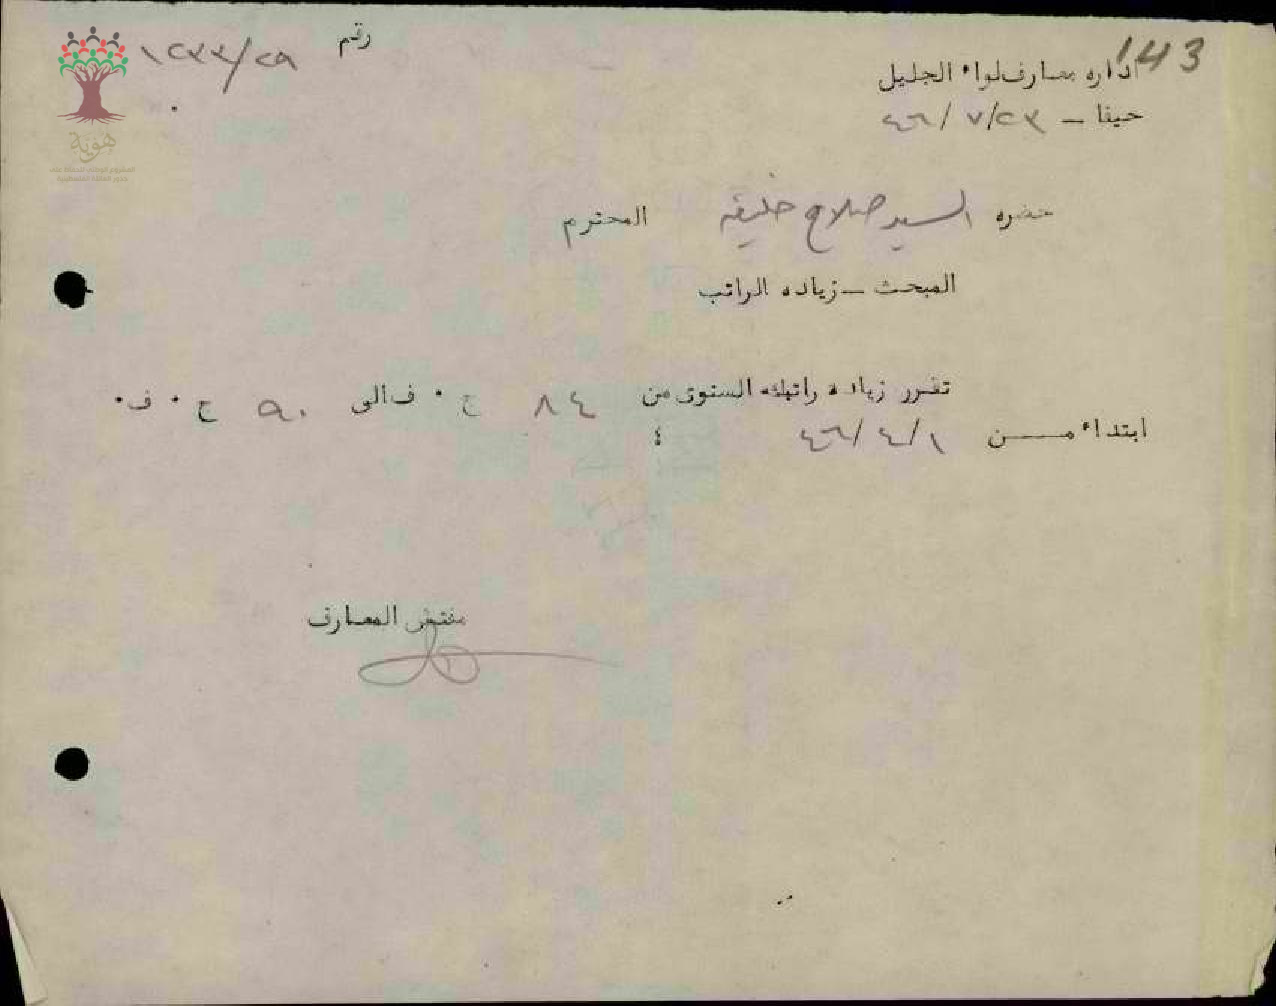 143
رقم ١٢٣٣/٢٩
اداره معارف لواء الجليل
حيفا – ٢٣/٧/٤٦
حضره السيد صلاح خليفه المحترم
المبحث – زياده الراتب
تقرر زياده راتبك السنوى من ٨٤ ج ٠ ف الى ٩٠ ج ٠ ف٠
ابتداء مـــن ١/٤/٤٦ ؛
مفتش المعارف
هوية